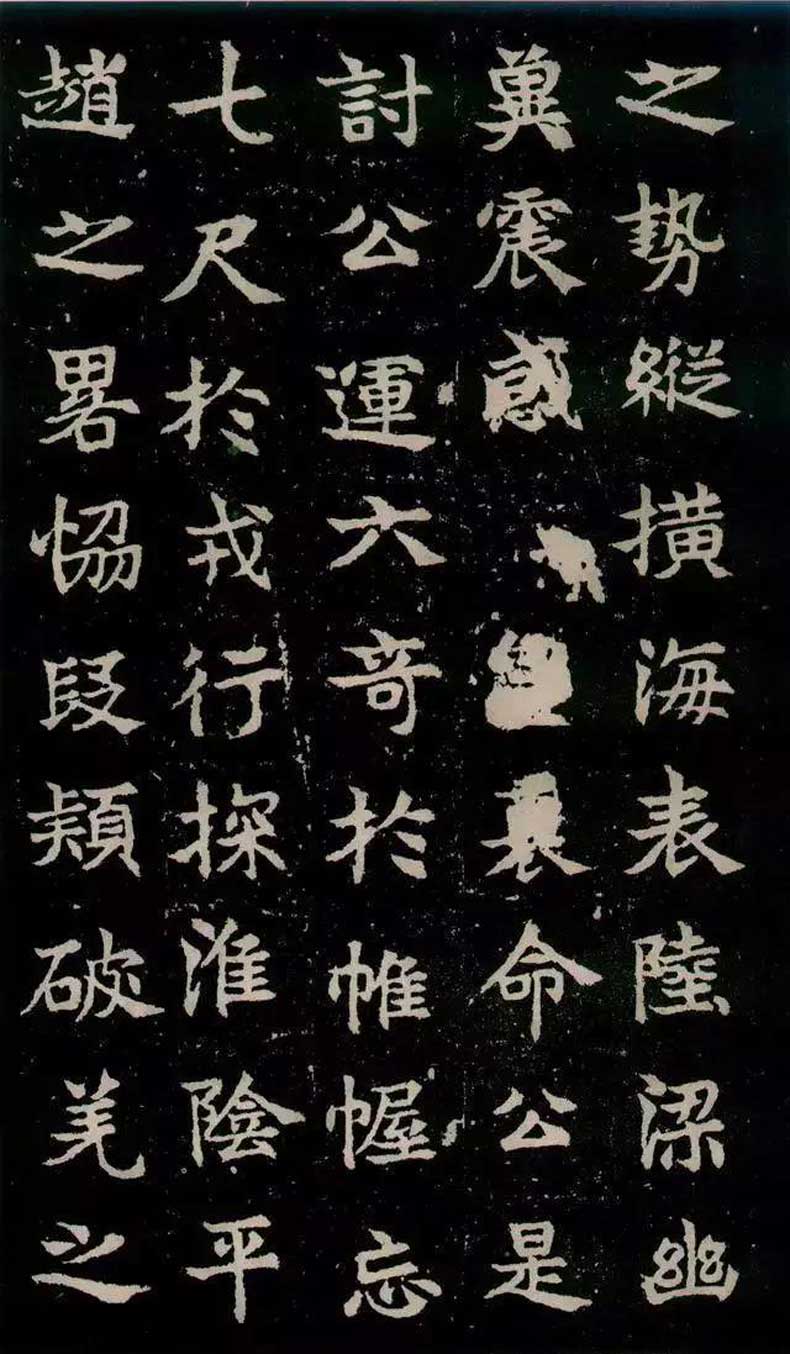 之势縱撗海表陸梁幽
冀震惑襄命公是
討公運六奇於帷幄忘
七尺於戎行探淮陰平
趙之畧恊段熲破羌之